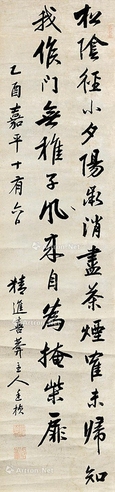 松陰徑小夕陽微消盡茶煙雀未歸知
我候門無稚子風來自為掩柴扉
乙酉嘉平十有六日
精進喜葊主人王楨